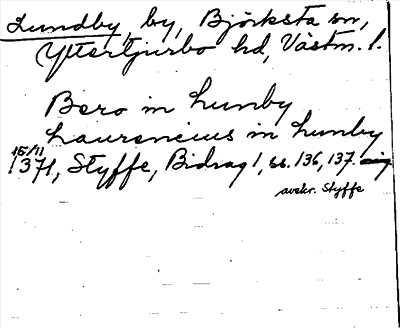 Lundby, by, Björksta sn,
Yttertjurbo hd, Västm. l.
Bero in Lunby
Laurencius in Lunby
15/11
1371, Styffe, Bidrag 1, ss. 136, 137.
avskr. Styffe